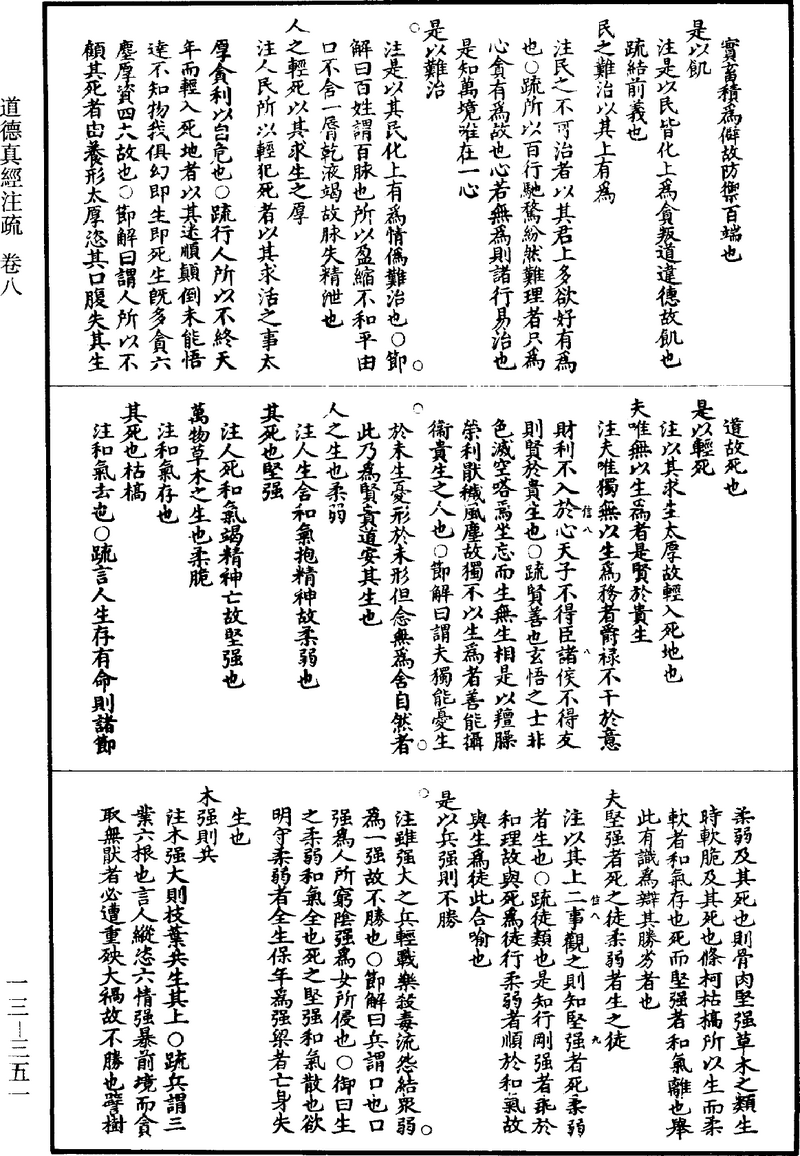 實畜積為僻故防禦百端也
是以飢
注是以民皆化上為貪叛道違德故飢也
疏結前義也
民之難治以其上有為
注民之不可治者以其君上多欲好有為
也○疏所以百行馳騖紛然難理者只為
心貪有為故也心若無為則諸行易治也
是知萬境唯在一心
是以難治
注是以其民化上有為情偽難治也○節
解曰百姓謂百脉也所以盈縮不和平由
口不舍一唇乾液竭故脉失精泄也
人之輕死以其求生之厚
注人民所以輕犯死者以其求活之事太
厚貪利以自危也○疏行人所以不終天
年而輕入死地者以其迷順顛倒未能悟
達不知物我俱幻即生即死生既多貪六
塵厚資四大故也○節解曰謂人所以不
顧其死者由養形太厚恣其口腹失其生
道故死也
是以輕死
注以其求生太厚故輕入死地也
夫唯無以生為者是賢於貴生
注夫唯獨無以生為務者爵禄不干於意
財利不入於心天子不得臣諸侯不得友
則賢於貴生也○疏賢善也玄悟之士非
色滅空嗒焉坐忘而生無生相是以羶臊
榮利猒穢風塵故獨不以生為者善能攝
衞貴生之人也○節解曰謂夫獨能憂生
於未生憂形於未形但念無為舍自然者
此乃為賢貴道安其生也
人之生也柔弱
注人生含和氣抱精神故柔弱也
其死也堅强
注人死和氣竭精神亡故堅强也
萬物草木之生也柔脆
注和氣存也
其死也枯槁
注和氣去也○疏言人生存有命則諸節
柔弱及其死也則骨肉堅强草木之類生
時軟脆及其死也條柯枯槁所以生而柔
軟者和氣存也死而堅强者和氣離也舉
此有識為辯其勝劣者也
夫堅强者死之徒柔弱者生之徒
注以其上二事觀之則知堅强者死柔弱
者生也○疏徒類也是知行剛强者乖於
和理故與死為徒行柔弱者順於和氣故
與生為徒此合喻也
是以兵强則不勝
注雖强大之兵輕戰樂殺毒流怨結衆弱
為一强故不勝也○節解曰兵謂口也口
强為人所窮陰强為女所侵也○御曰生
之柔弱和氣全也死之堅强和氣散也欲
明守柔弱者全生保年為强梁者亡身失
生也
木强則共
注木强大則枝葉共生其上○疏兵謂三
業六根也言人縱恣六情强暴前境而貪
取無猒者必遭重殃大禍故不勝也譬樹
道德真經注疏 卷八
一三—三五一